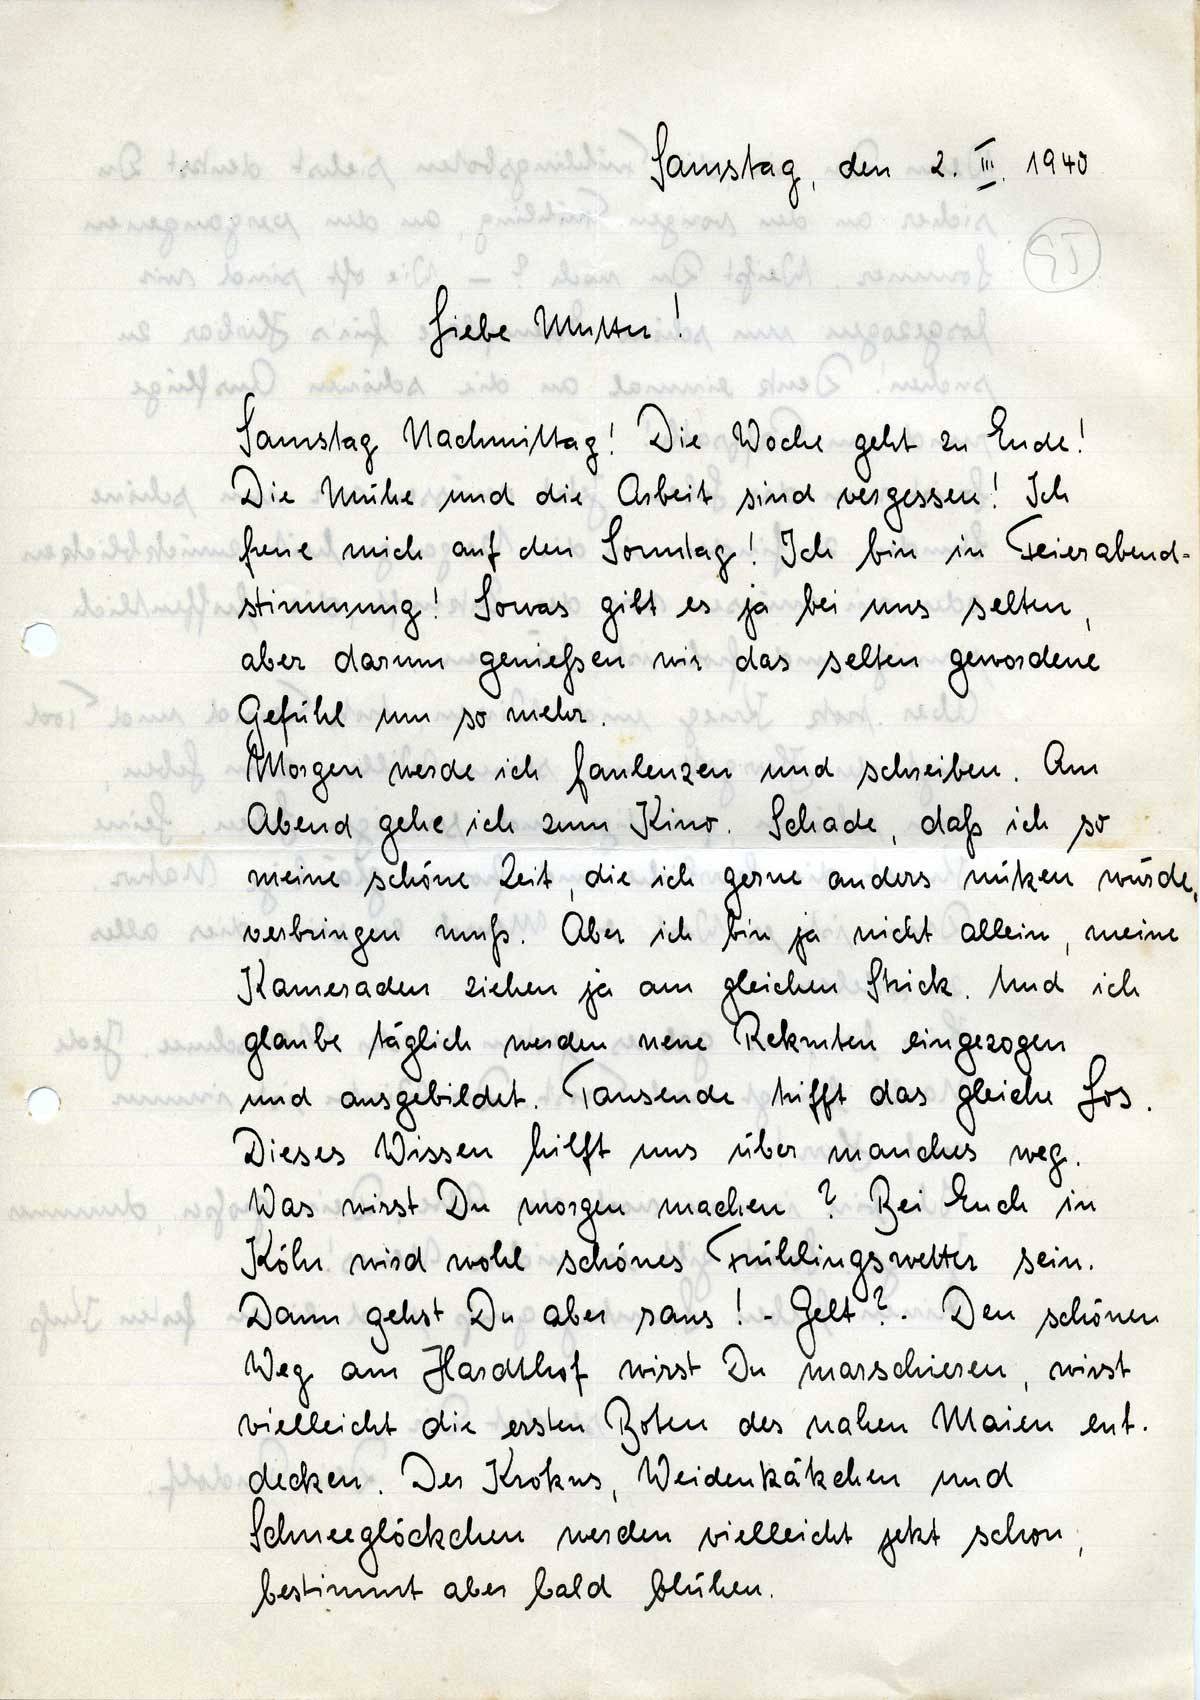 Samstag, den 2. III. 1940
95
Liebe Mutter!
Samstag Nachmittag! Die Woche geht zu Ende!
Die Mühe und die Arbeit sind vergessen! Ich
freue mich auf den Sonntag! Ich bin in Feierabend-
stimmung! Sowas gibt es ja bei uns selten,
aber darum genießen wir das selten gewordene
Gefühl um so mehr.
Morgen werde ich faulenzen und schreiben. Am
Abend gehe ich zum Kino. Schade, daß ich so
meine schöne Zeit, die ich gerne anders nützen würde,
verbringen muß. Aber ich bin ja nicht allein, meine
Kameraden ziehen ja am gleichen Strick. Und ich
glaube täglich werden neue Rekruten eingezogen
und ausgebildet. Tausende trifft das gleiche Los.
Dieses Wissen hilft uns über manches weg.
Was wirst Du morgen machen? Bei Euch in
Köln wird wohl schönes Frühlingswetter sein.
Dann gehst Du aber raus! - Gelt?. Den schönen
Weg am Hardthof wirst Du marschieren, wirst
vielleicht die ersten Boten des nahen Maien ent-
decken. Der Krokus, Weidenkätzchen und
Schneeglöckchen werden vielleicht jetzt schon,
bestimmt aber bald blühen.